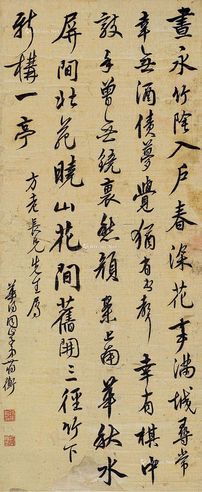 晝永竹陰入戶春深花事滿城尋常
幸無酒債夢覺猶有書聲幸有棋中
敵手曾無鏡裏愁顏案上南華秋水
屏間北苑曉山花間舊開三徑竹下
新構一亭
方老長兄先生屬
同學弟 衡